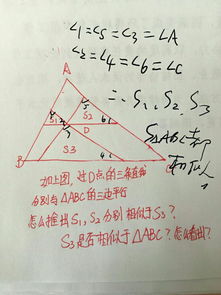 ∠1=∠5=∠3=∠A
∠2=∠4=∠6=∠C
∴ S₁、S₂、S₃
与△ABC都
相似
A
S₁
S₂
D
S₃
B
如上图,过D点的三条直线
分别与△ABC的三边平行
怎么推出S₁,S₂分别相似于S₃?
S₃是否相似于△ABC?怎么看出?